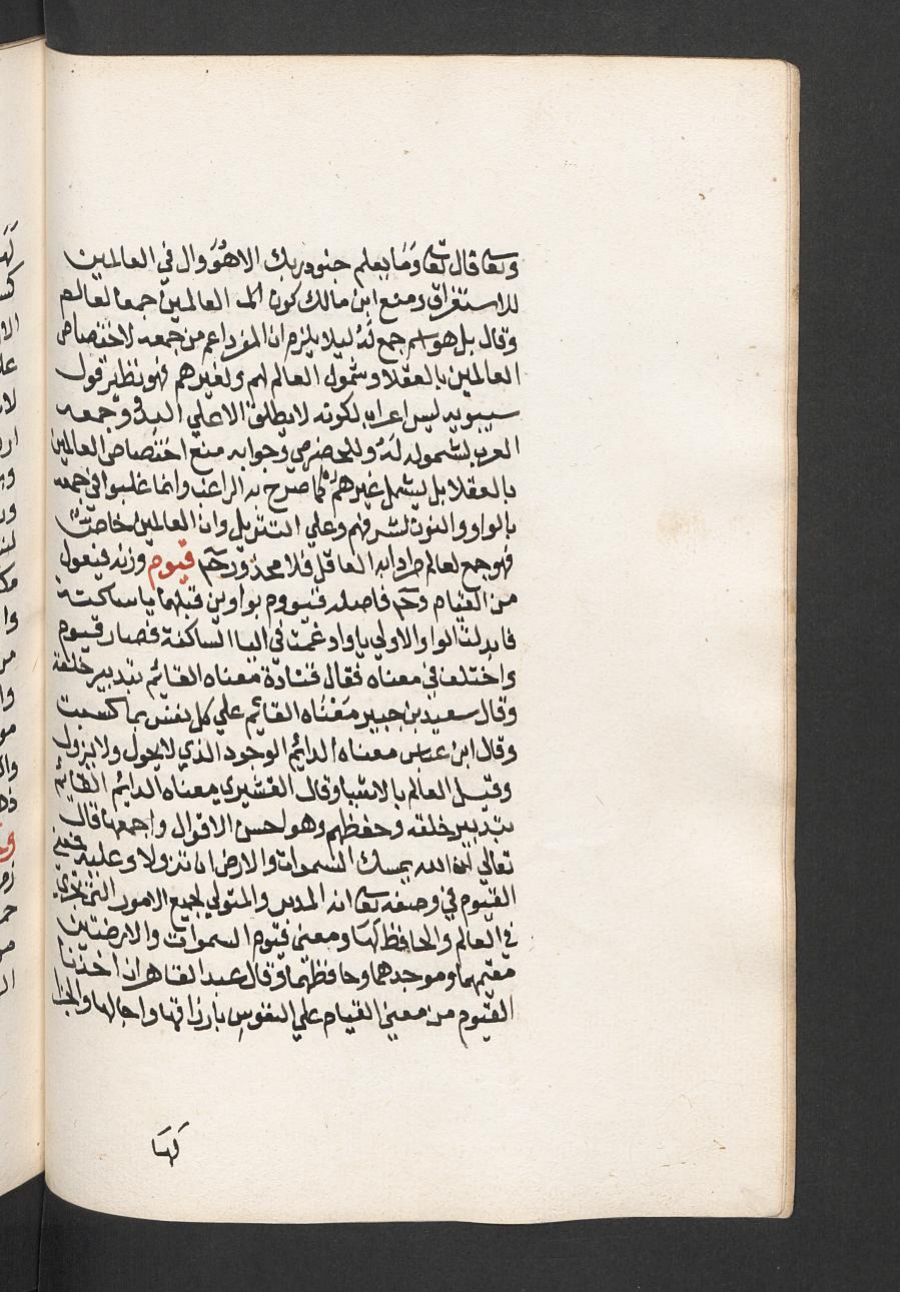 وتعا قال تعا وَمَا يعلم جنود ربك الا هُوَ وال في العالمين
للاستغراق ومنع ابن مالك كون العالمين جمعا لعالم
وقال بل هو اسم جمع لَهُ ليلا يلزم ان المفرد اعم من جمعه لاختصاص
العالمين بالعقلا وشمول العالم لهم ولغيرهم فهو نظير قول
سيبويه ليس اعراب لكونه لا يطلق الا علي البدو جمعه
العرب لشموله لَهُ وللحضر هي وجوابه منع اختصاص العالمين
بالعقلا بل يشمل غيرهم كما صرح به الراغب وانما غلبوا في جمعه
بالواو والنون لشرفهم وعلي التنزيل وان العالمين خاص
فهو جمع لعالم مرادا به العاقل فلا محذور رحم قيوم وزنه فيعول
من القيام وحم فاصله قيووم بواوين قبلهما يا ساكنة
فابدلت الواو الاولي يا وادغمت في اليا الساكنة فصار قيوم
واختلف في معناه فقال قتادة معناه القائم بتدبير خلقه
وقال سعيد بن جبير مَعْنَاه القائم علي كل نفس بما كسبت
وقال ابن عباس معناه الدائم الوجود الذي لا يحول ولا يزول
وقيل العالم بالاشيا وقال القشيري معناه الدايم القائم
بتدبير خلقه وحفظهم وهو احسن الاقوال واجمعها قال
تعالي ان الله يمسك السموات والارض ان تزولا وعليه فمعني
القيوم في وصفه تعا انه المدبر والمتولي لجميع الامور التي تجري
في العالم والحافظ لَهَا ومعنى قيوم السموات والارضين
مقيمهما وموجدهما وحافظهما وقال عبد القاهر ان اخذنا
القيوم من معني القيام علي النفوس بارزاقها واجالها والجزا
لَهَا